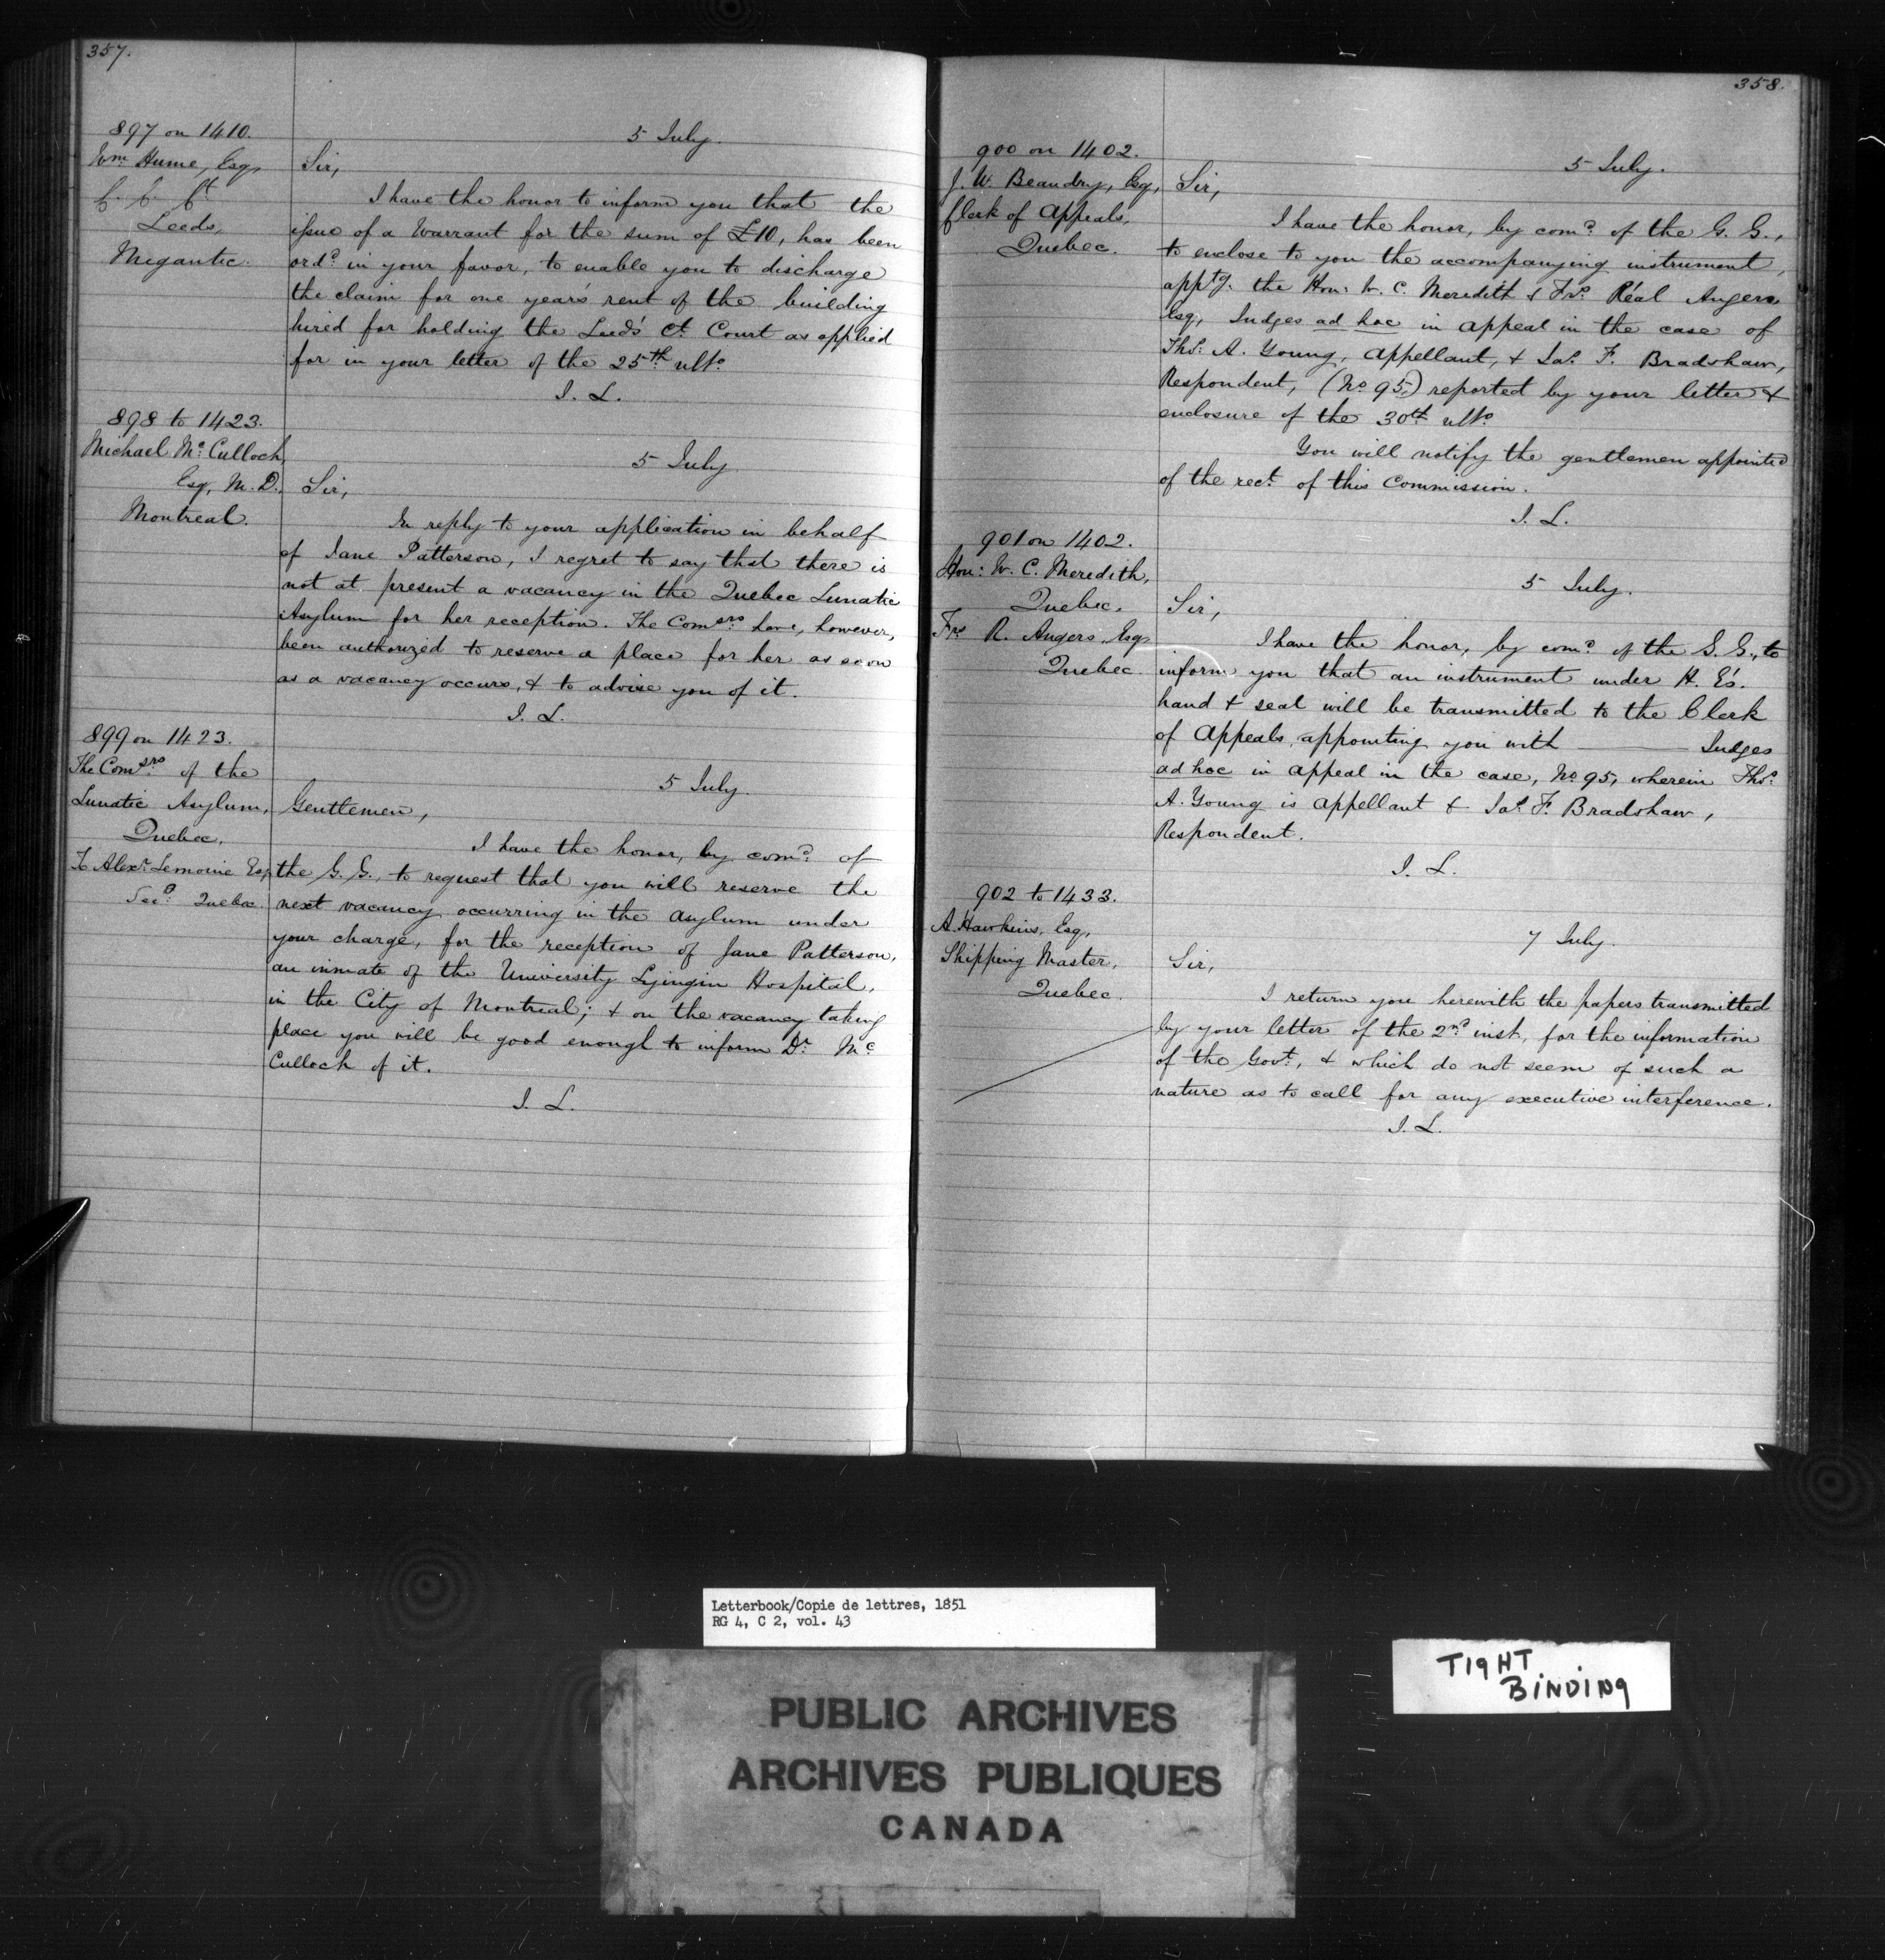 357.
897 on 1410.
Wm. Hume, Esq,
C. C. Ct
Leeds,
Megantic.
5 July.
Sir,
I have the honor to inform you that the
issue of a Warrant for the sum of £10, has been
ord.d in your favor, to enable you to discharge
the claim for one year's rent of the building
hired for holding the Leeds' Ct. Court as applied
for in your letter of the 25th. ulto.
I. L.
898 to 1423.
Michael Mc.Culloch,
Esq, M. D.
Montreal.
5 July
Sir,
In reply to your application in behalf
of Jane Patterson, I regret to say that there is
not at present a vacancy in the Quebec Lunatic
Asylum for her reception. The Comsrs. have, however,
been authorized to reserve a place for her as soon
as a vacancy occurs, & to advise you of it.
I. L.
899 on 1423.
The Comsrs. of the
Lunatic Asylum,
Quebec.
To Alexr. Lemoine Esq,
Secy. Quebec.
5 July.
Gentlemen,
I have the honor, by comd. of
the G. G., to request that you will reserve the
next vacancy occurring in the asylum under
your charge, for the reception of Jane Patterson,
an inmate of the University Lyingin Hospital,
in the City of Montreal; & on the vacancy taking
place you will be good enough to inform Dr. Mc.
Culloch of it.
I. L.
358.
900 on 1402.
J. W. Beaudry, Esq,
Clerk of Appeals,
Quebec.
5 July.
Sir,
I have the honor, by comd. of the G. G.,
to enclose to you the accompanying instrument,
apptg. the Hon: W. C. Meredith & Frs. Réal Angers
Esq, Judges ad hoc in appeal in the case of
Thos. A. Young, Appellant, & Jas. F. Bradshaw,
Respondent, (No. 95,) reported by your letter &
enclosure of the 30th ulto.
You will notify the gentlemen appointed
of the rect. of this Commission.
I. L.
901 on 1402.
Hon: W. C. Meredith,
Quebec.
Frs R. Angers, Esq,
Quebec.
5 July.
Sir,
I have the honor, by comd. of the G. G., to
inform you that an instrument under H. E's.
hand & seal will be transmitted to the Clerk
of Appeals, appointing you with ——— Judges
ad hoc in appeal in the case, No. 95, wherein Thos.
A. Young is appellant & Jas. F. Bradshaw,
Respondent.
I. L.
902 to 1433.
A. Hawkins, Esq,
Shipping Master,
Quebec.
7 July.
Sir,
I return you herewith the papers transmitted
by your letter of the 2nd. inst, for the information
of the Govt., & which do not seem of such a
nature as to call for any executive interference.
I. L.
Letterbook/Copie de lettres, 1851
RG 4, C 2, vol. 43
TIGHT
BINDING
PUBLIC ARCHIVES
ARCHIVES PUBLIQUES
CANADA